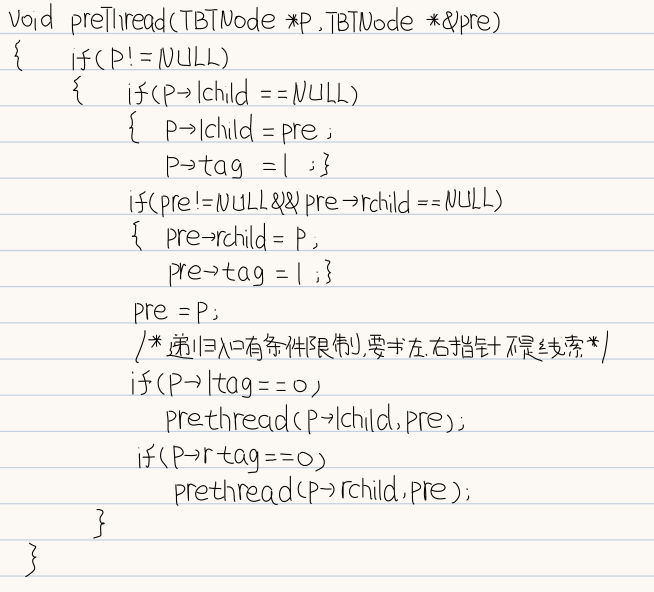 void preThread(TBTNode *P,TBTNode *&pre)
{ if(P!=NULL)
{ if(P→lchild ==NULL)
{ P→lchild = pre ;
P→tag =1 ;}
if(pre!=NULL&&pre→rchild ==NULL)
{ pre→rchild = P;
pre→tag =1 ;}
pre =P;
/*递归入口有条件限制,要求左.右指针不是线索*/
if(P→ltag==0)
prethread(P→lchild,pre);
if(P→rtag==0)
prethread(P→rchild,pre);
}
}